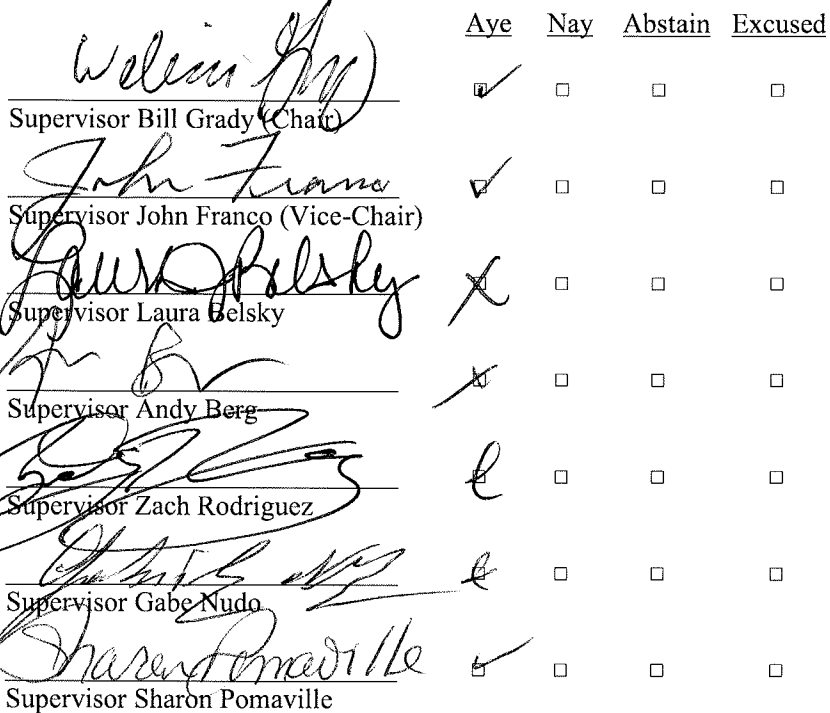 Aye Nay Abstain Excused
Supervisor Bill Grady (Chair)
John Franco
Supervisor John Franco (Vice-Chair)
Laura J Belsky
Supervisor Laura Belsky
Supervisor Andy Berg
Supervisor Zach Rodriguez
Supervisor Gabe Nudo
Sharon Pomaville
Supervisor Sharon Pomaville